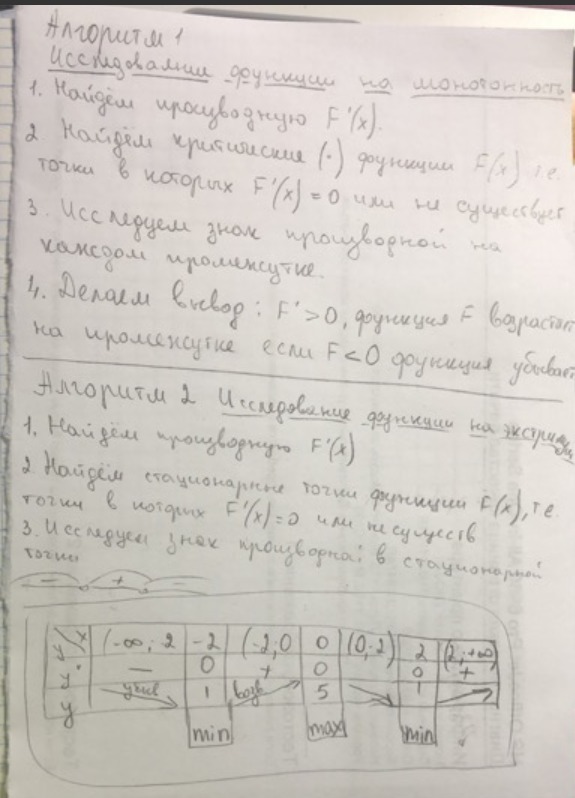 Алгоритм 1
Исследование функции на монотонность
1. Найдём производную F'(x).
2. Найдём критические (·) функции F(x) т.е.
точки в которых F'(x) = 0 или не существует
3. Исследуем знак производной на
каждом промежутке.
4. Делаем вывод: F' > 0, функция F возрастает
на промежутке если F < 0 функция убывает
Алгоритм 2 Исследование функции на
1. Найдём производную F'(x)
2 Найдём стационарные точки функции F(x), т.е.
точки в которых F'(x) = 0 или не существ
3. Исследуем знак производной в стационарной
точки
− + −
y/x (-∞; -2 -2 (-2; 0 0 (0; 2) 2 (2; +∞)
y' — 0 + 0 0 +
y убыв 1 возв 5 1
min max min